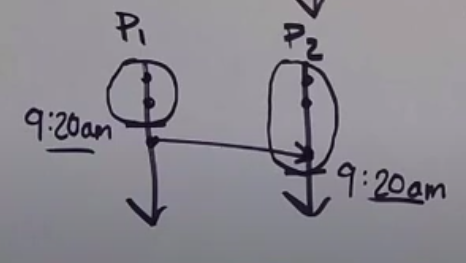 P1 P2
9:20am
9:20am